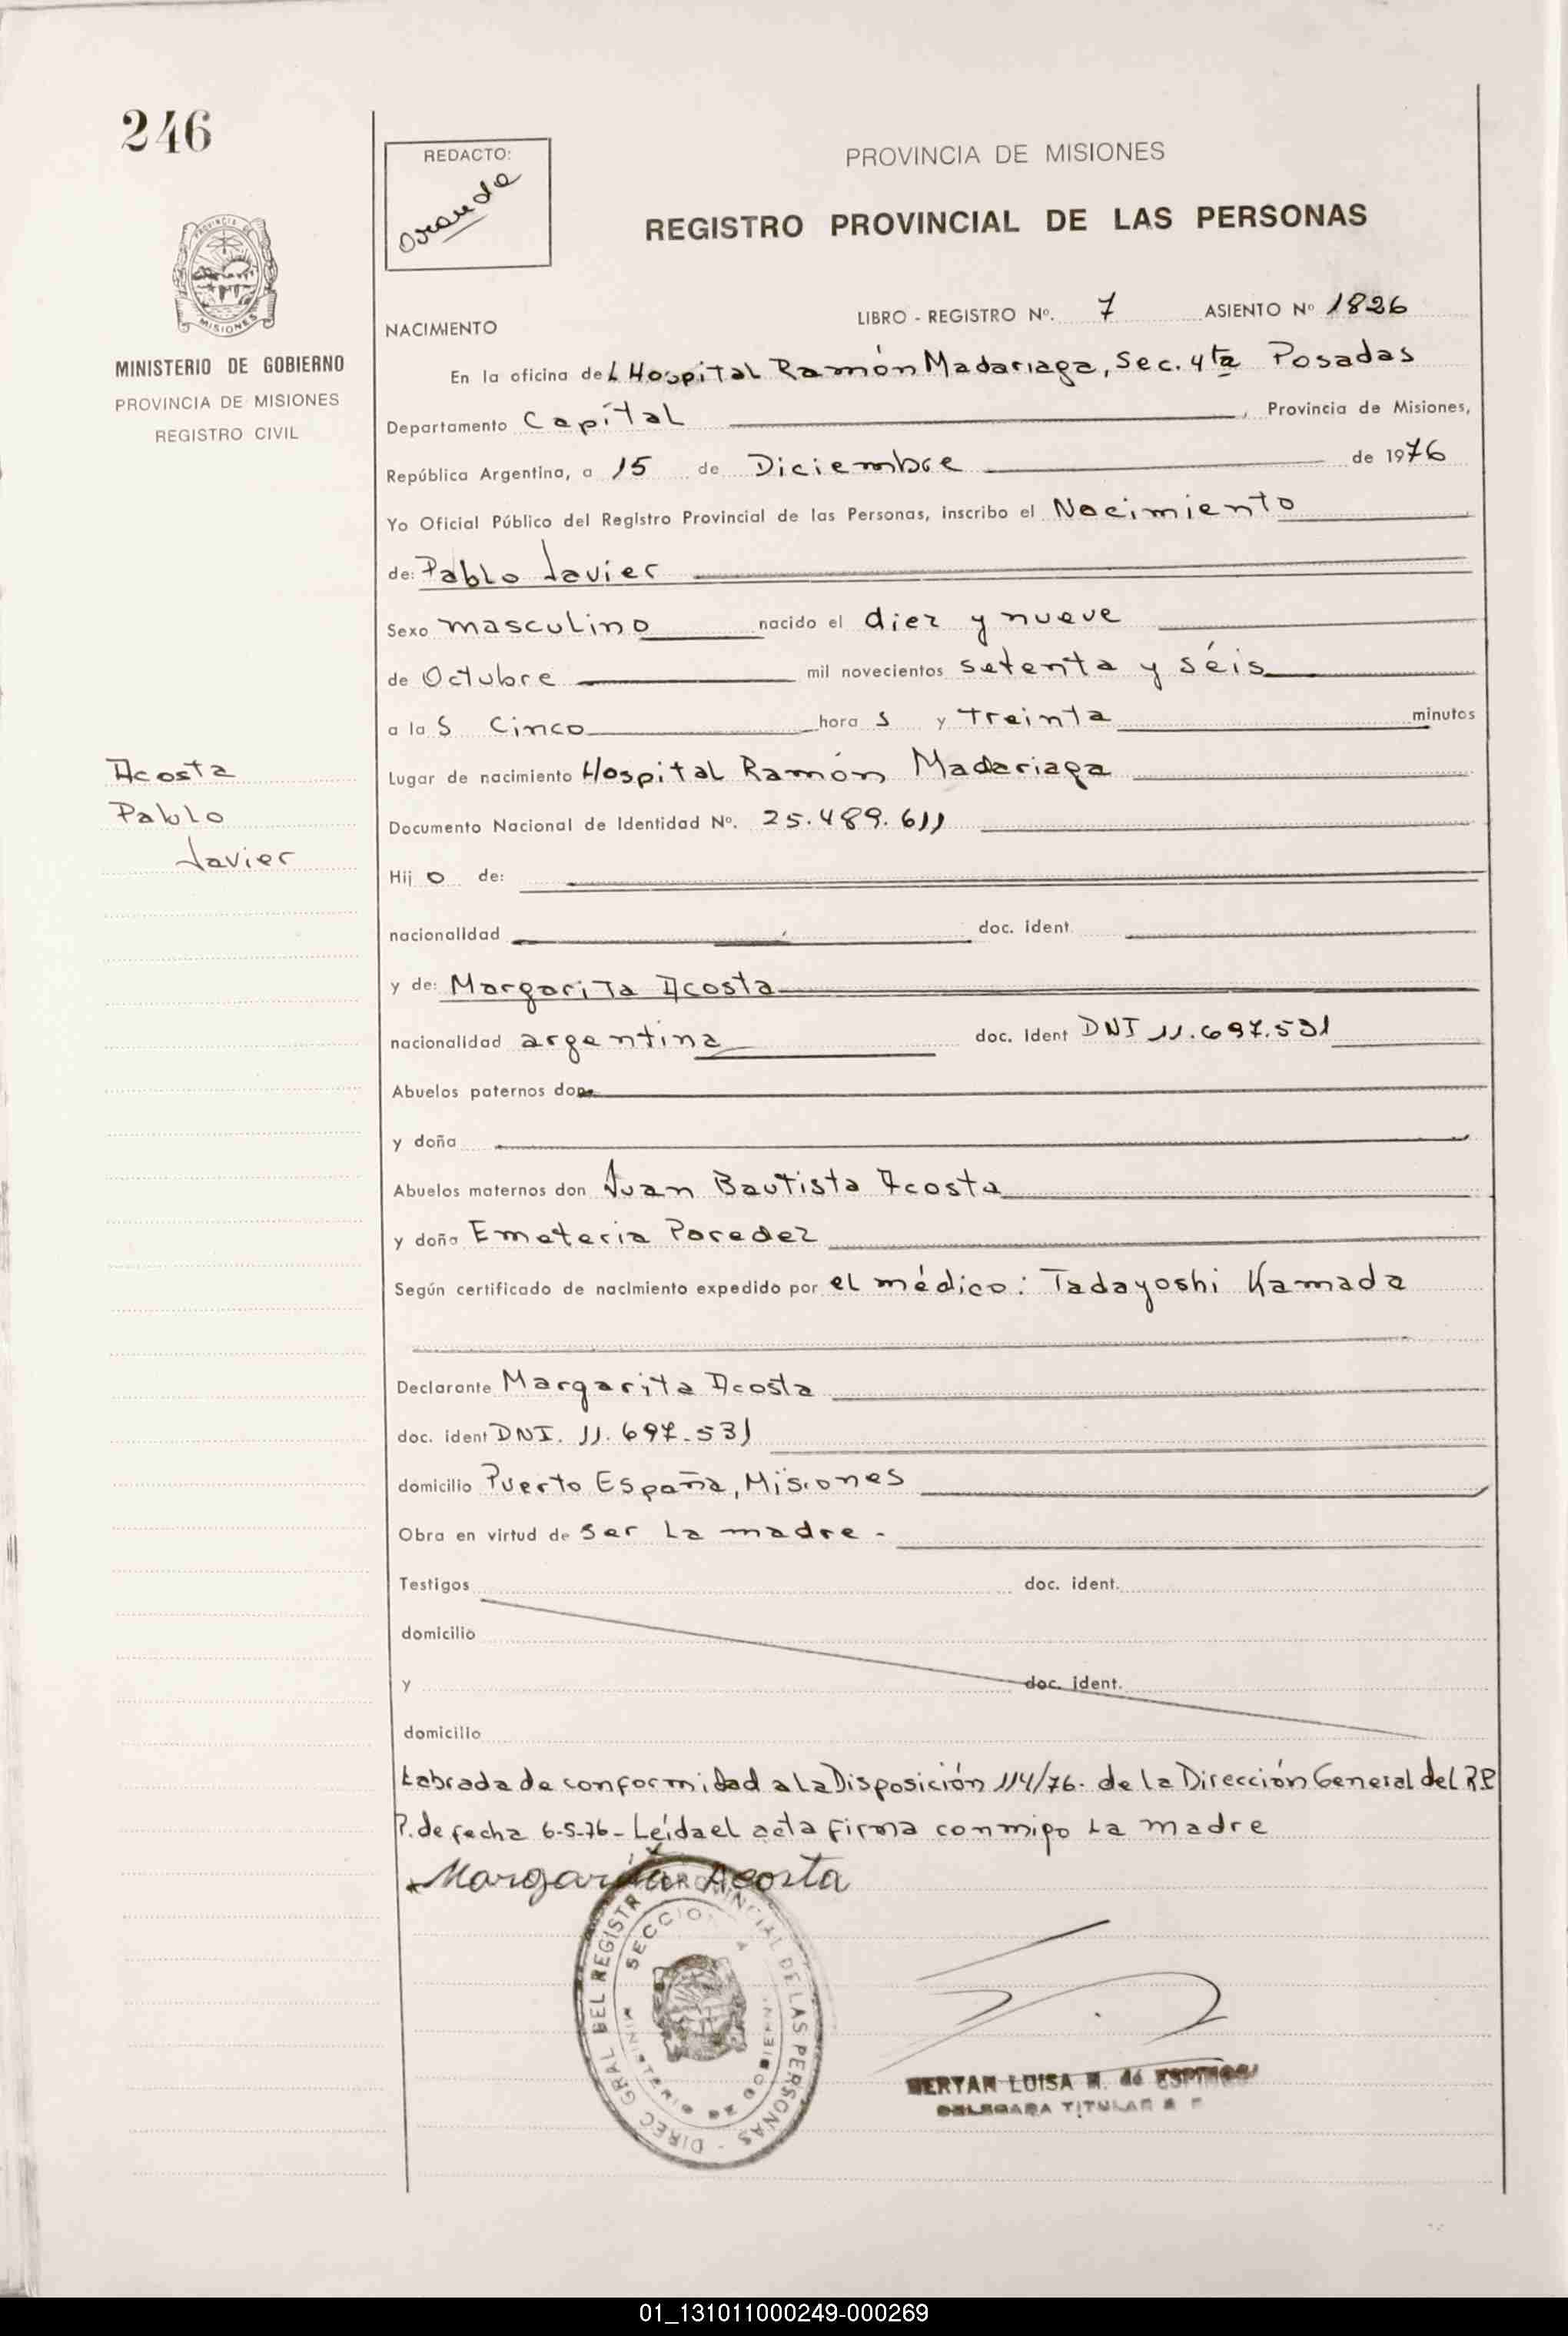 246
REDACTO:
PROVINCIA DE MISIONES
REGISTRO PROVINCIAL DE LAS PERSONAS
PROVINCIA DE
MISIONES
MINISTERIO DE GOBIERNO
PROVINCIA DE MISIONES
REGISTRO CIVIL
LIBRO - REGISTRO Nº. 7 ASIENTO Nº 1826
NACIMIENTO
En la oficina del Hospital Ramón Madariaga, Sec. 4ta Posadas
Departamento Capítal, Provincia de Misiones,
República Argentina, a 15 de Diciembre de 1976
Yo Oficial Público del Registro Provincial de las Personas, inscribo el Nacimiento
de: Pablo Javier
Sexo masculino nacido el diez y nueve
de Octubre mil novecientos setenta y séis
a las Cinco horas y treinta minutos
Acosta
Pablo
Javier
Lugar de nacimiento Hospital Ramón Madariaga
Documento Nacional de Identidad Nº. 25.489.611
Hijo de:
nacionalidad doc. ident
y de: Margarita Acosta
nacionalidad argentina doc. Ident DNI 11.697.531
Abuelos paternos don
y doña
Abuelos maternos don Juan Bautista Acosta
y doña Emeteria Paredez
Según certificado de nacimiento expedido por el médico: Tadayoshi Kamada
Declarante Margarita Acosta
doc. ident DNI. 11.697.531
domicilio Puerto España, Misiones
Obra en virtud de ser la madre.-
Testigos doc. ident.
domicilio
y doc. ident.
domicilio
Labrada de conformidad a la Disposición 114/76- de la Dirección General del R.P.
P. de fecha 6-5-76- Leída el acta firma conmigo la madre
Margarita Acosta
DIREC GRAL DEL REGISTRO PROVINCIAL DE LAS PERSONAS
SECCION
MINISTERIO DE GOBIERNO
LUISA M. de
TITULAR
01_131011000249-000269